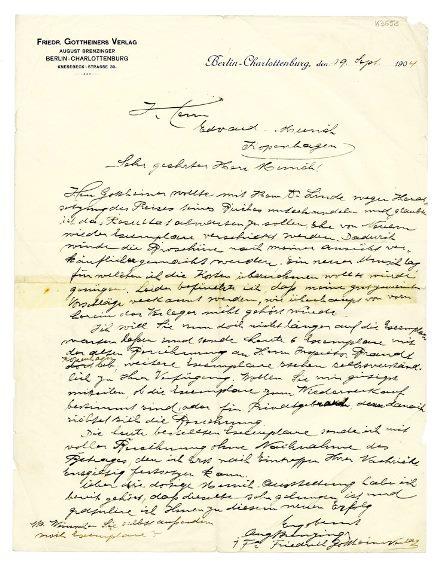 K3652
FRIEDR. GOTTHEINERS VERLAG
AUGUST BRENZINGER
BERLIN-CHARLOTTENBURG
KNESEBECK-STRASSE
Berlin-Charlottenburg, den 19. Sept. 1904
Herrn
Edvard Munch
Kopenhagen
Sehr geehrter Herr Munch!
Herr Gottheiner wollte mit Herrn Dr. Linde wegen
des Preises seines Buches unterhandeln und glaubte
ich das Resultat abwarten zu sollen, Ehe von Neuem
wieder Exemplare verschickt werden. Dadurch
würde die Broschüre nach meiner Ansicht
gemacht werden. Ein neuer Umschlag
für welchen ich die Kosten übernehmen wollte würde
genügen. Leider befürchte ich daß meine gutgemeinten
Vorschläge verkannt werden, weil überhaupt von vorn
herein der Verleger nicht gehört wurde
Ich will Sie nun doch nicht länger auf die Exemplare
warten lassen und sende heute 6 Exemplare mit
der alten Berechnung an Herrn
weitere Exemplare stehen
zu Ihrer Verfügung. Wollen Sie mir gütigst
mitteilen ob die Exemplare zum Wiederverkauf
bestimmt sind, oder für denn danach
richtet sich die Berechnung.
Die heute bestellten Exemplare sende ich mit
voller Berechnung ohne Nachnahme des
Betrages, den ich erst nach Eintreffen Ihrer Nachricht
Endgültig festsetzen kann.
Ueber die dortige Munch-Ausstellung habe ich
bereits gehört, daß dieselbe sehr schön ist und
gratuliere ich Ihnen zu diesem neuen Erfolg
Ergebenst
Aug. Brenzinger
Friedrich Gottheiners Verlag
Wünschen Sie selbst außerdem
noch Exemplare?